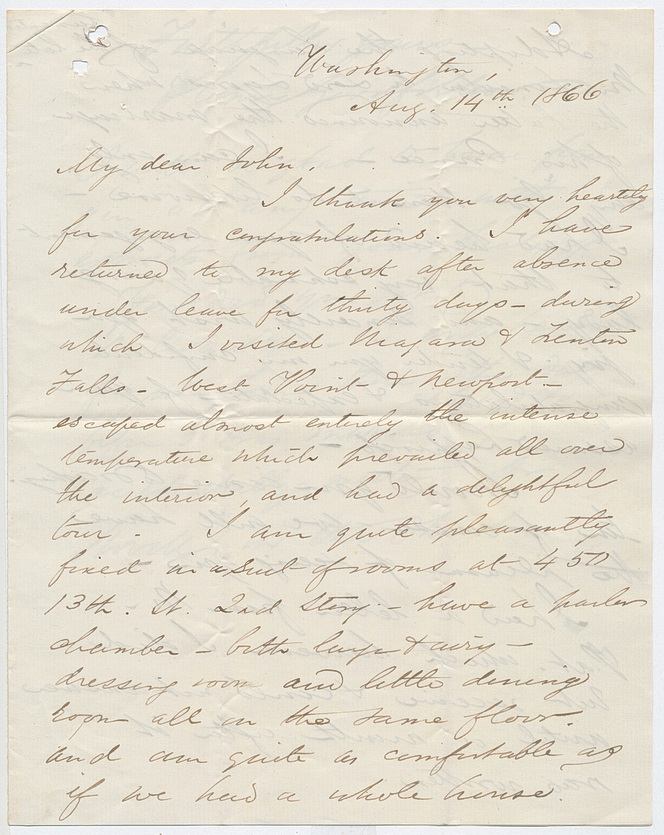 Washington,
Aug. 14th 1866
My dear John.
I thank you very heartily
for your congratulations. I have
returned to my desk after absence
under leave for thirty days - during
which I visited Niagara & Trenton
Falls - West Point & Newport -
escaped almost entirely the intense
temperature which prevailed all over
the interior, and had a delightful
tour. I am quite pleasantly
fixed in a suit of rooms at 450
13th. St. 2nd Story - have a parlor
chamber - both large & airy -
dressing room and little dining
room all on the same floor.
and am quite as comfortable as
if we had a whole house.